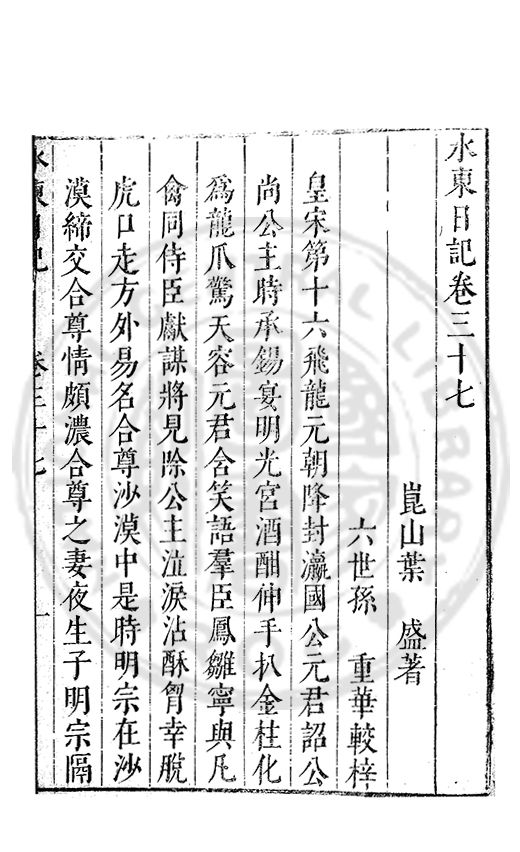 水東日記卷三十七
崑山葉　盛著
六世孫　重華較梓
皇宋第十六飛龍元朝降封瀛國公元君詔公
尚公主時承錫宴明光宮酒酣伸手扒金柱化
爲龍爪驚天容元君含笑語羣臣鳳雛寧與凡
禽同侍臣獻謀將見除公主泣淚沾酥胷幸脫
虎口走方外易名合尊沙漠中是時明宗在沙
漠締交合尊情頗濃合尊之妻夜生子明宗隔
水東日記　卷三十七　一